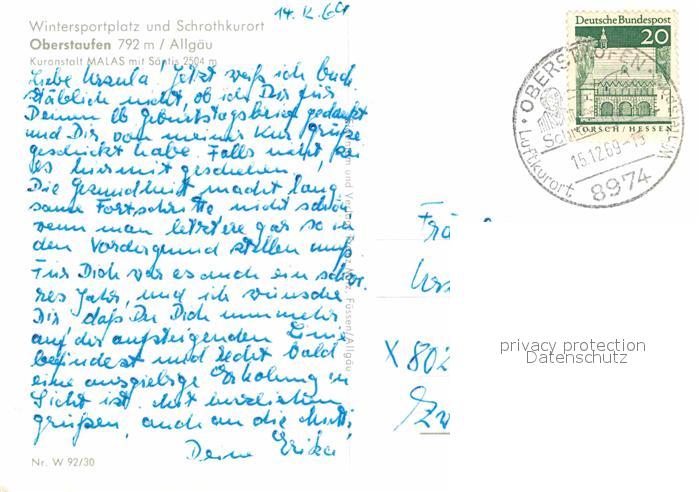 14.12.69
Wintersportplatz und Schrothkurort
Oberstaufen 792 m / Allgäu
Kuranstalt MALAS mit Säntis 2504 m
Liebe Ursula! Jetzt weiß ich buch
stäblich nicht, ob ich Dir für
Deinen lb Geburtstagsbrief gedankt
und Dir von meiner Kur Grüße
geschickt habe. Falls nicht, sei
es hiermit geschehen.
Die Gesundheit macht lang
same Fortschritte, nicht schön
wenn man letztere gar so in
den Vordergrund stellen muß
Für Dich war es auch ein schwe
res Jahr, und ich wünsche
Dir daß Du Dich nunmehr
auf der aufsteigenden Linie
befindest und recht bald
eine ausgiebige Erholung in
Sicht ist. Mit herzlichen
Grüßen, auch an die Mutti,
Deine Erika
Nr. W 92/30
Füssen/Allgäu
Deutsche Bundespost
20
LORSCH / HESSEN
OBERSTAUFEN
15.12.69-15
Luftkurort
8974
Frä
Urs
X 802
privacy protection
Datenschutz